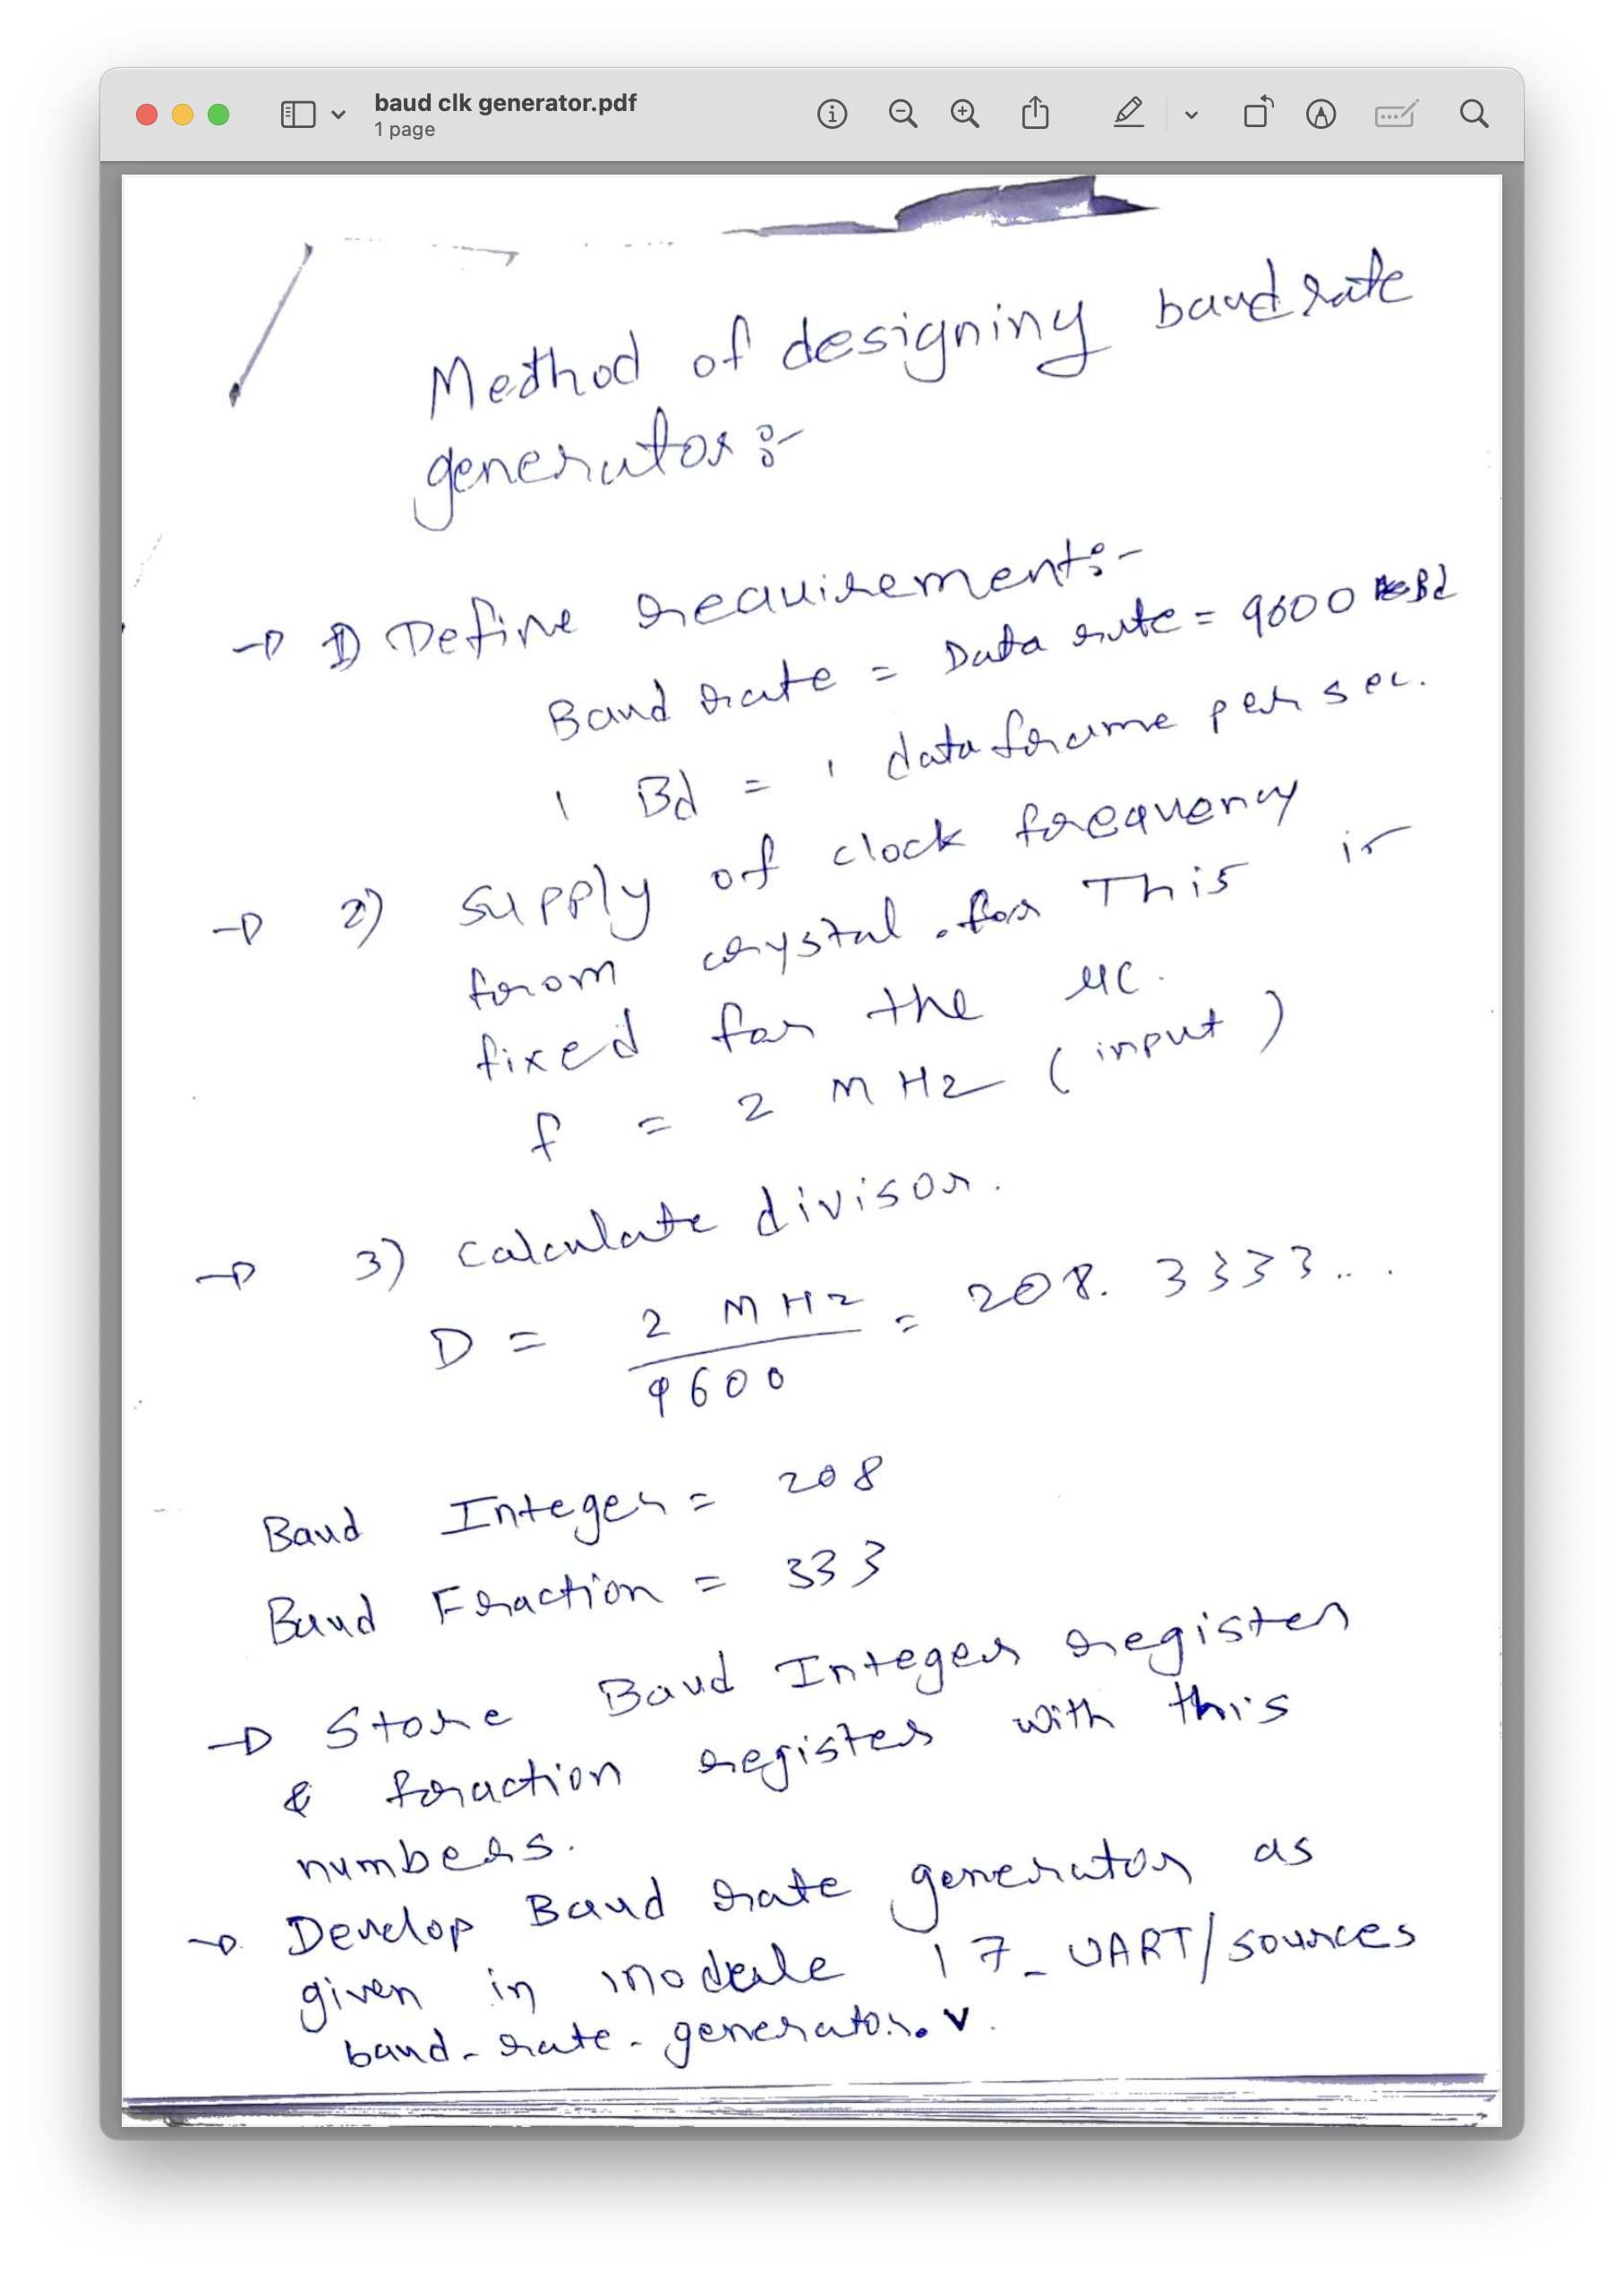 baud clk generator.pdf
1 page
Method of designing baud rate
generator:-
→ 1) Define requirement:-
Baud rate = Data rate = 9600 Bd
1 Bd = 1 data frame per sec.
→ 2) supply of clock frequency
from crystal. for This is
fixed for the uc.
f = 2 MHz (input)
→ 3) calculate divisor.
D = 2 MHz / 9600 = 208.3333...
Baud Integer = 208
Baud Fraction = 333
→ Store Baud Integer register
& fraction register with this
numbers.
→ Develop Baud rate generator as
given in module 17_UART/sources
baud-rate-generator.v.